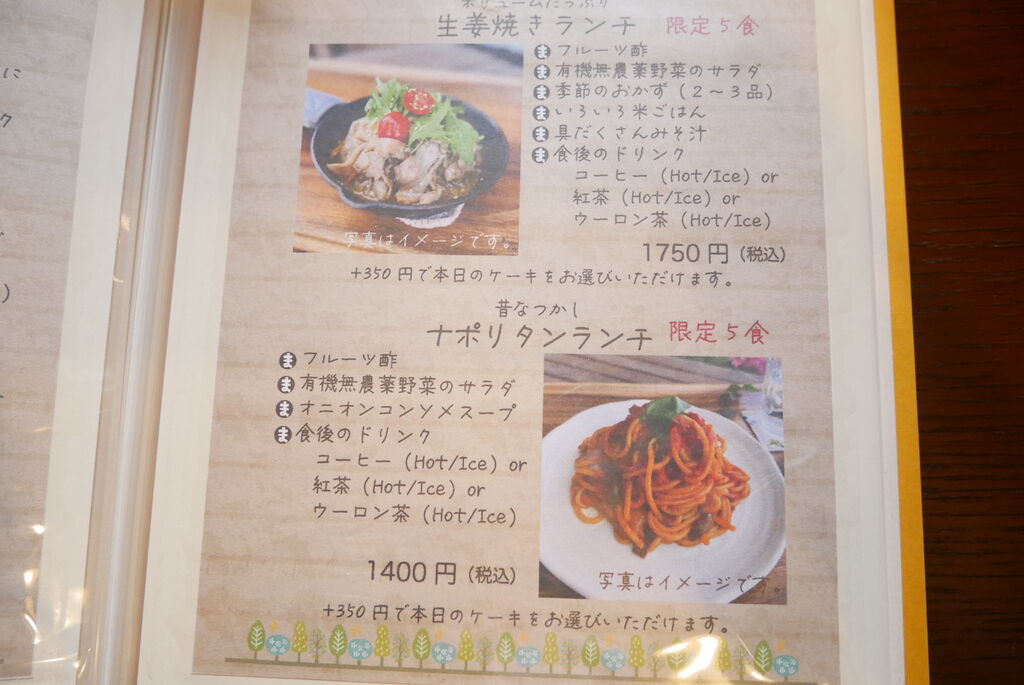 ボリュームたっぷり
生姜焼きランチ 限定5食
ま フルーツ酢
ま 有機無農薬野菜のサラダ
ま 季節のおかず（2～3品）
ま いろいろ米ごはん
ま 具だくさんみそ汁
ま 食後のドリンク
コーヒー（Hot/Ice）or
紅茶（Hot/Ice）or
ウーロン茶（Hot/Ice）
写真はイメージです。
1750円（税込）
+350円で本日のケーキをお選びいただけます。
昔なつかし
ナポリタンランチ 限定5食
ま フルーツ酢
ま 有機無農薬野菜のサラダ
ま オニオンコンソメスープ
ま 食後のドリンク
コーヒー（Hot/Ice）or
紅茶（Hot/Ice）or
ウーロン茶（Hot/Ice）
1400円（税込）
写真はイメージです。
+350円で本日のケーキをお選びいただけます。